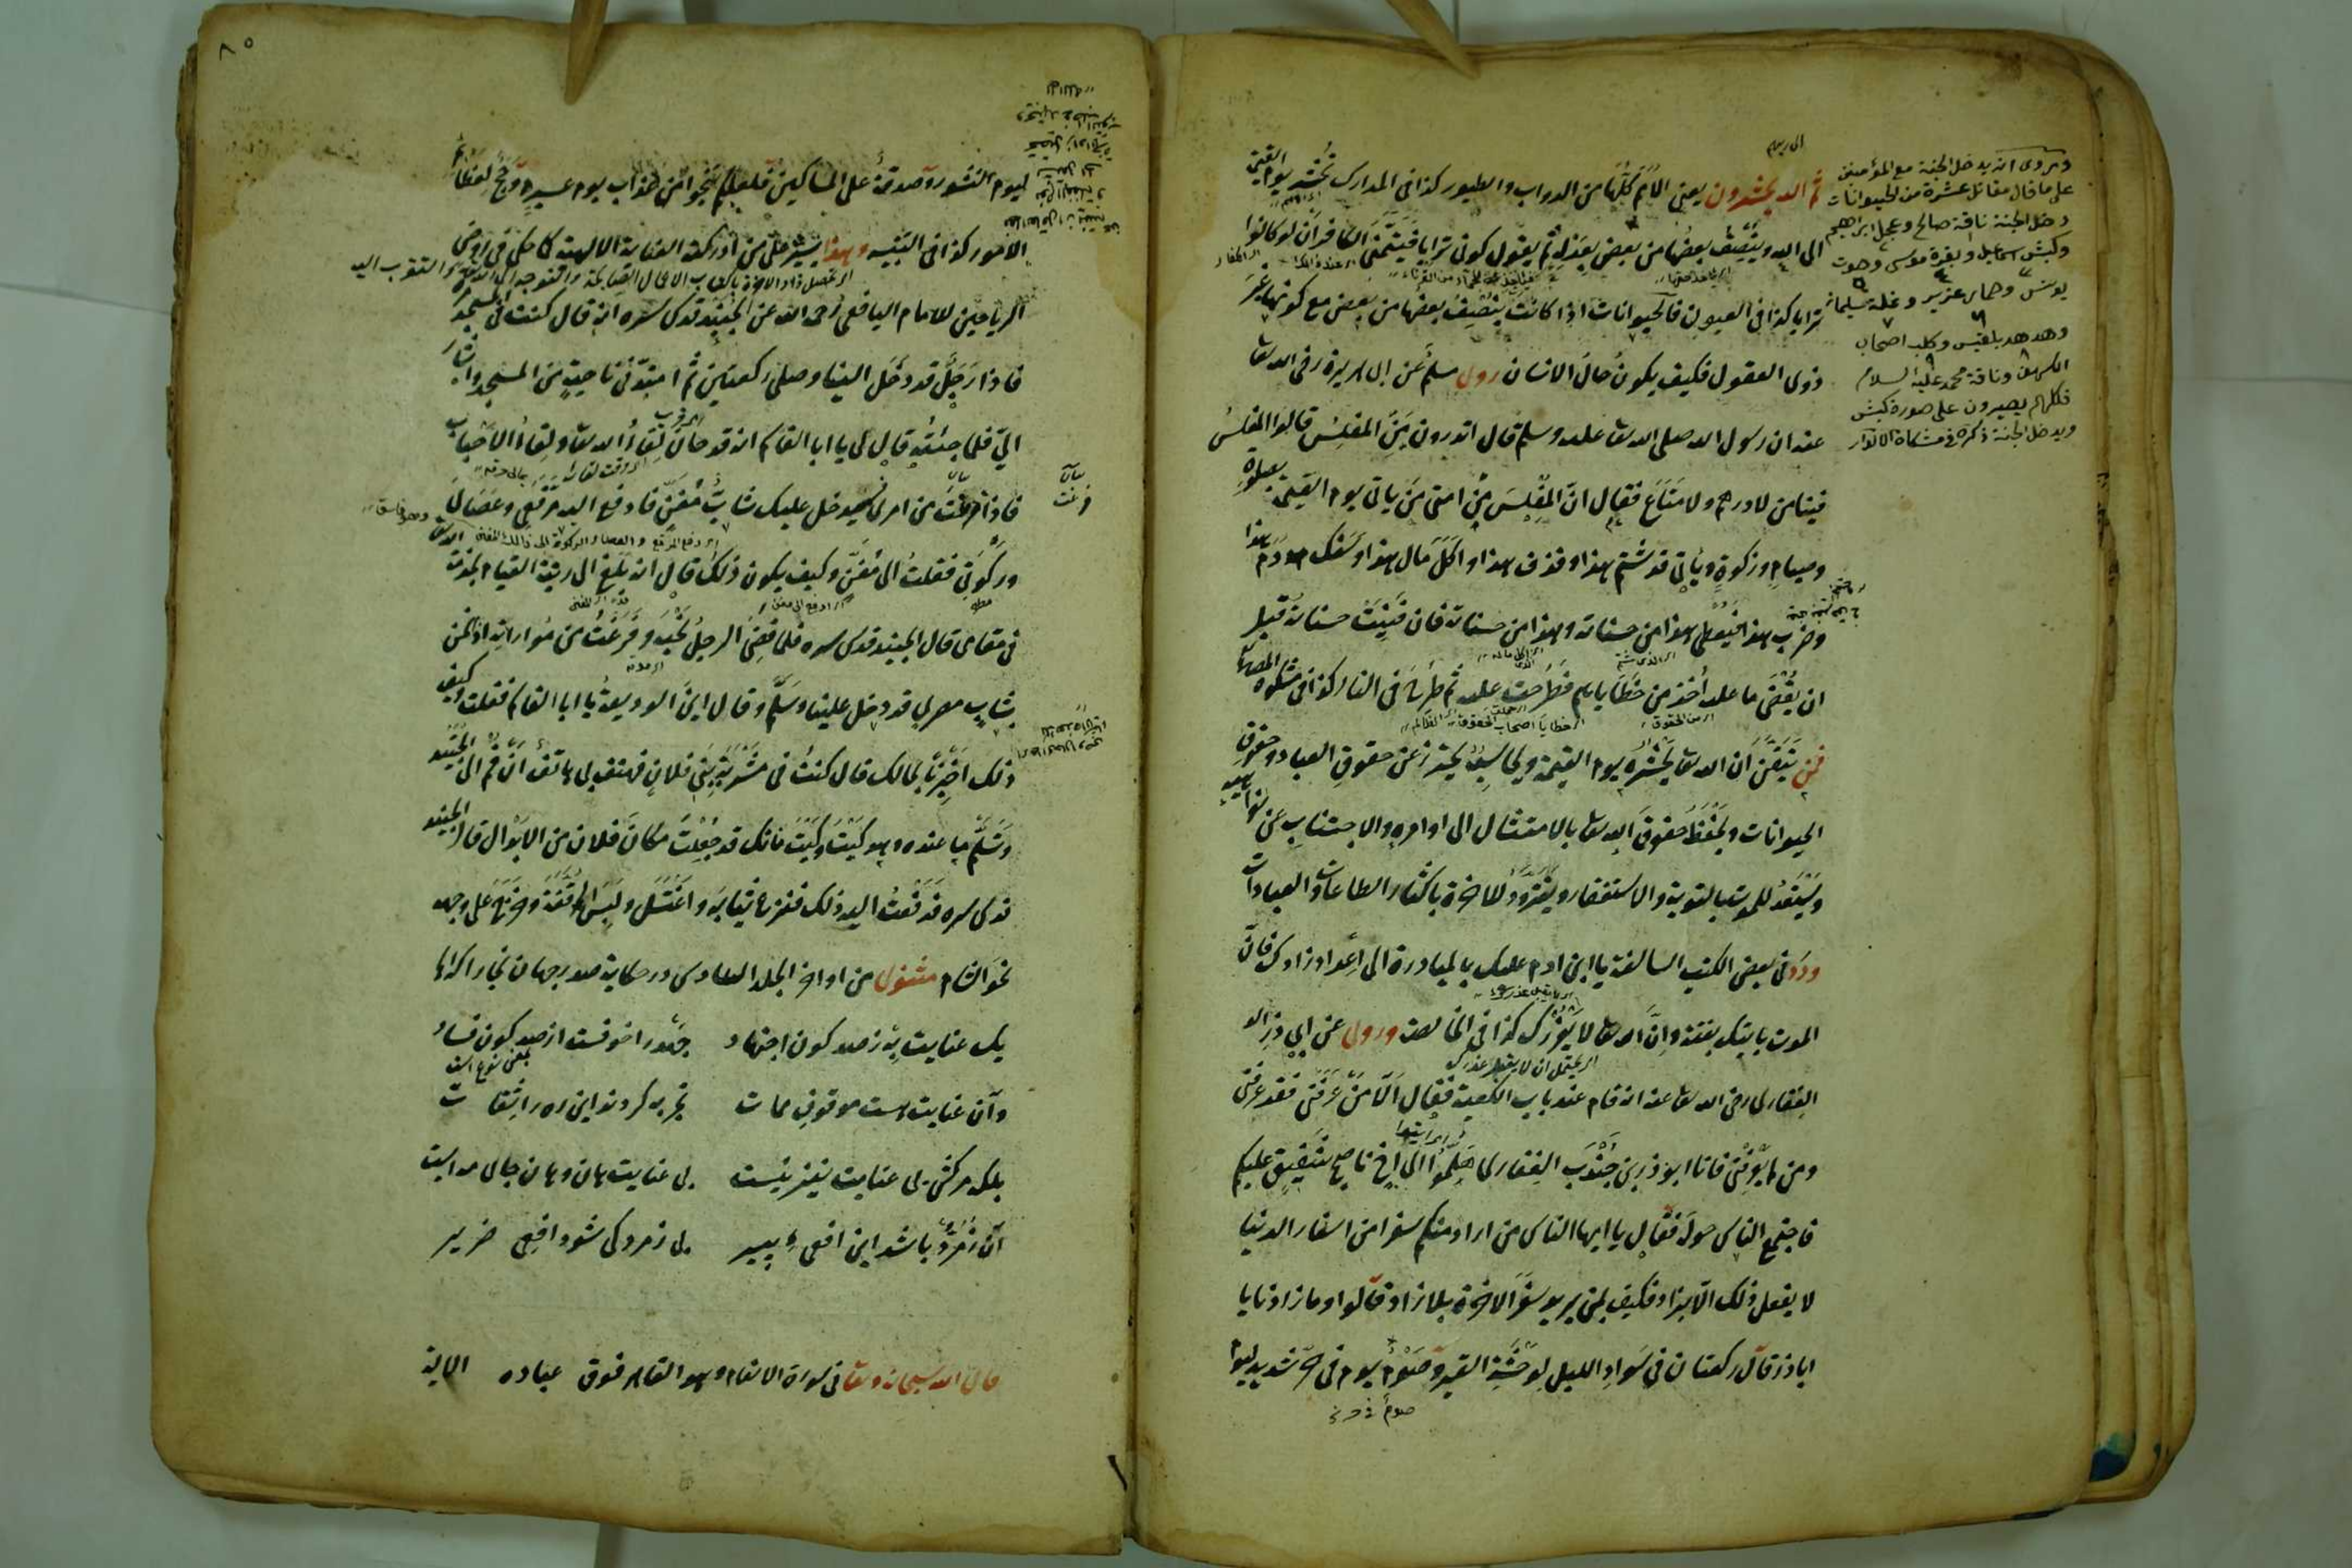 ثم اليه يحشرون يعنى الامم كلها من الدواب والطيور كذا فى المدارك تحشر يوم القيمة
الى الله وينتصف بعضها من بعض ثم يقول كونى ترابا فيتمنى الكافر ان لو كانوا
ترابا كذا فى العيون فالحيوانات اذا كانت ينتصف بعضها من بعض مع كونها غير
ذوى العقول فكيف يكون حال الانسان روى مسلم عن ابى هريرة رضى الله تعا
عنه ان رسول الله صلى الله تعا عليه وسلم قال اتدرون من المفلس قالوا المفلس
فينا من لا درهم ولا متاع فقال ان المفلس من امتى من ياتى يوم القيمة بصلوة
وصيام وزكوة وياتى قد شتم هذا وقذف هذا واكل مال هذا وسفك دم هذا
وضرب هذا فيعطى هذا من حسناته وهذا من حسناته فان فنيت حسناته قبل
ان يقضى ما عليه اخذ من خطاياهم فطرحت عليه ثم طرح فى النار كذا فى مشكوة المصابيح
فمن تيقن ان الله تعا يحشره يوم القيمة ويحاسبه يحترز عن حقوق العباد وحقوق
الحيوانات ويحفظ حقوق الله تعا بالامتثال الى اوامره والاجتناب عن نواهيه
ويستعد للموت بالتوبة والاستغفار ويتزود للاخرة باكثار الطاعات والعبادات
ورد فى بعض الكتب السالفة يا ابن ادم عليك بالمبادرة الى اعداد زادك فان
الموت ياتيك بغتة وان الله تعا لا يعذرك كذا فى الخالصة وروى عن ابى ذر
الغفارى رضى الله تعا عنه انه قام عند باب الكعبة فقال الا من عرفنى فقد عرفنى
ومن لم يعرفنى فانا ابو ذر بن جندب الغفارى هلموا الى اخ ناصح شفيق عليكم
فاجتمع الناس حوله فقال يا ايها الناس من اراد منكم سفرا من اسفار الدنيا
لا يفعل ذلك الا بزاد فكيف لمن يريد سفر الاخرة بلا زاد قالوا وما زادنا يا
ابا ذر قال ركعتان فى سواد الليل لوحشة القبر وصوم يوم فى حر شديد ليوم
ويروى انه يدخل الجنة مع المؤمنين
على ما قال مقاتل عشرة من الحيوانات
دخل الجنة ناقة صالح وعجل ابراهيم
وكبش اسماعيل وبقرة موسى وحوت
يونس وحمار عزير ونملة سليمان
وهدهد بلقيس وكلب اصحاب
الكهف وناقة محمد عليه السلام
فكلهم يصيرون على صورة كبش
ويدخل الجنة ذكره فى مشكاة الانوار
٨٥
ليوم النشور وصدقة على المساكين فلعلكم تنجوا من عذاب يوم عسير وحج لعظائم
الامور كذا فى التنبيه وهذا يتيسر على من ادركته العناية الالهية كما حكى فى روض
الرياحين للامام اليافعى رحمه الله عن الجنيد قدس سره انه قال كنت فى المسجد
فاذا رجل قد دخل الينا وصلى ركعتين ثم امتد فى ناحية من المسجد واشار
الى فلما جئته قال لى يا ابا القاسم انه قد حان لقاء الله تعا ولقاء الاحباب
فاذا فرغت من امرى فسيدخل عليك شاب مغن فادفع اليه مرقعى وعصاى
وركوتى فقلت الى مغن وكيف يكون ذلك قال انه بلغ الى رتبة القيام بخدمة
فى مقامى قال الجنيد قدس سره فلما قضى الرجل نحبه وفرغت من مواراته اذا نحن
بشاب مصرى قد دخل علينا وسلم وقال اين الوديعة يا ابا القاسم فقلت وكيف
ذلك اخبرنا بحالك قال كنت فى مشربة بنى فلان فهتف بى هاتف ان قم الى الجنيد
وتسلم ما عنده وهو كيت وكيت فانك قد جعلت مكان فلان من الابدال قال الجنيد
قدس سره فدفعت اليه ذلك فنزع ثيابه واغتسل ولبس المرقعة وخرج على وجهه
نحو الشام مثنوى من اواخر الجلد السادس در حكاية صدر جهان بخارا
يك عنايت به ز صد كون اجتهاد جهد را خوفست از صد كون فساد
وآن عنايت هست موقوف ممات تجربه كردند اين ره را ثقات
بلكه مركش بى عنايت نيز نيست بى عنايت هان وهان جايى مه ايست
آن زمرد باشد اين افعى پير بى زمرد كى شود افعى ضرير
قال الله سبحانه وتعا فى سورة الانعام وهو القاهر فوق عباده الاية